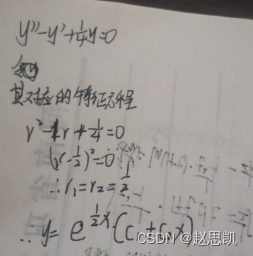 y''-y'+\frac{1}{4}y=0
其对应的特征方程
r²-r+\frac{1}{4}=0
(r-\frac{1}{2})²=0
∴r₁=r₂=\frac{1}{2}
∴y=e^{\frac{1}{2}x}(C₁+C₂x)
CSDN @赵思凯